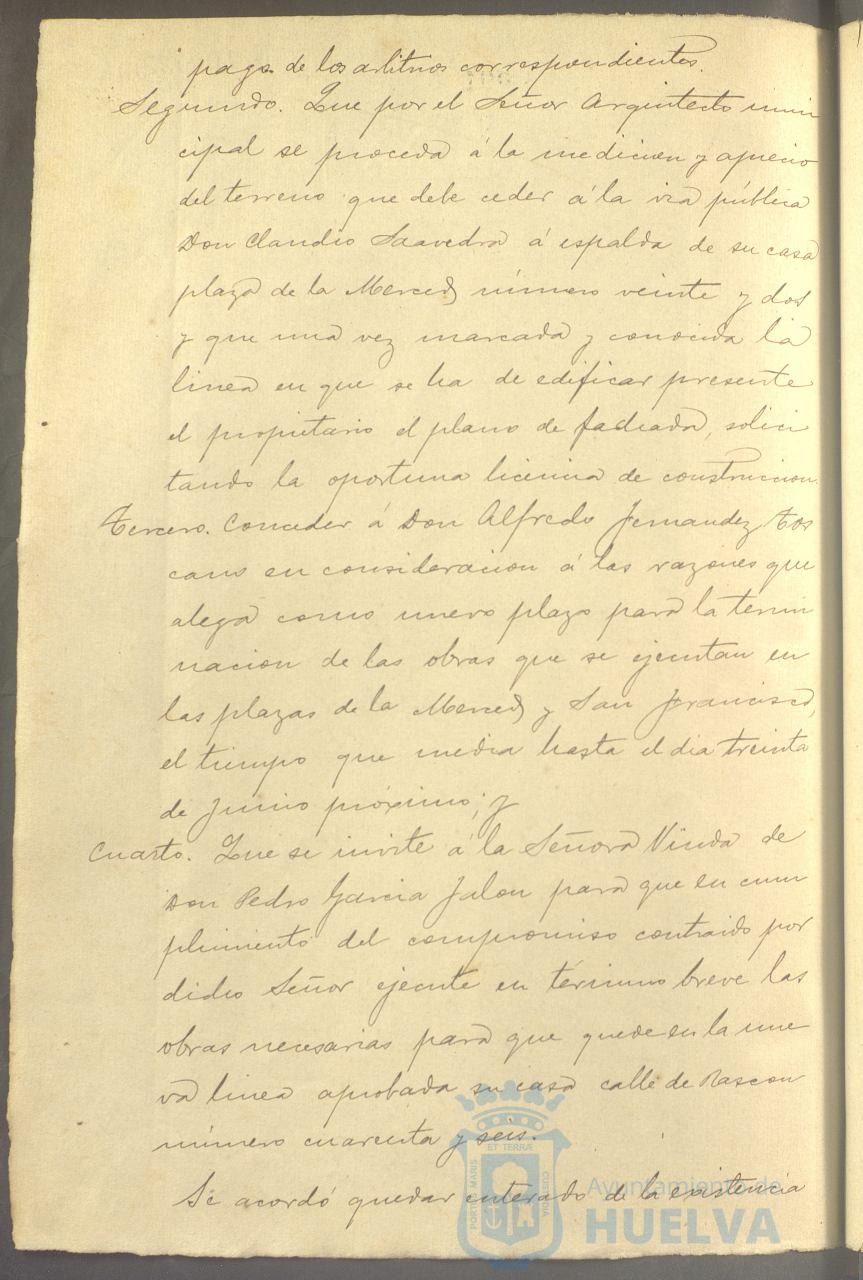 pago de los arbitrios correspondientes.
Segundo. Que por el Señor Arquitecto muni
cipal se proceda á la medicion y aprecio
del terreno que debe ceder á la via pública
Don Claudio Saavedra á espalda de su casa
plaza de la Merced número veinte y dos
y que una vez marcada y conocida la
linea en que se ha de edificar presente
el propietario el plano de fachada, solici
tando la oportuna licencia de construccion.
Tercero. Conceder á Don Alfredo Fernandez Tos
cano en consideracion á las razones que
alega como nuevo plazo para la termi
nacion de las obras que se ejecutan en
las plazas de la Merced y San Francisco,
el tiempo que media hasta el dia treinta
de Junio próximo; y
Cuarto. Que se invite á la Señora Viuda de
Don Pedro Garcia Jalon para que en cum
plimiento del compromiso contraido por
dicho Señor ejecute en término breve las
obras necesarias para que quede en la nue
va linea aprobada su casa calle de Rascon
número cuarenta y seis.
Se acordó quedar enterado de la existencia
PORTUS MARIS ET TERRAE CUSTODIA
Ayuntamiento de
HUELVA